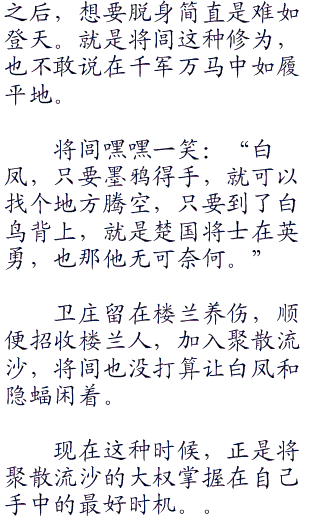 之后，想要脱身简直是难如
登天。就是将闾这种修为，
也不敢说在千军万马中如履
平地。
将闾嘿嘿一笑：“白
凤，只要墨鸦得手，就可以
找个地方腾空，只要到了白
鸟背上，就是楚国将士在英
勇，也那他无可奈何。”
卫庄留在楼兰养伤，顺
便招收楼兰人，加入聚散流
沙，将闾也没打算让白凤和
隐蝠闲着。
现在这种时候，正是将
聚散流沙的大权掌握在自己
手中的最好时机。。